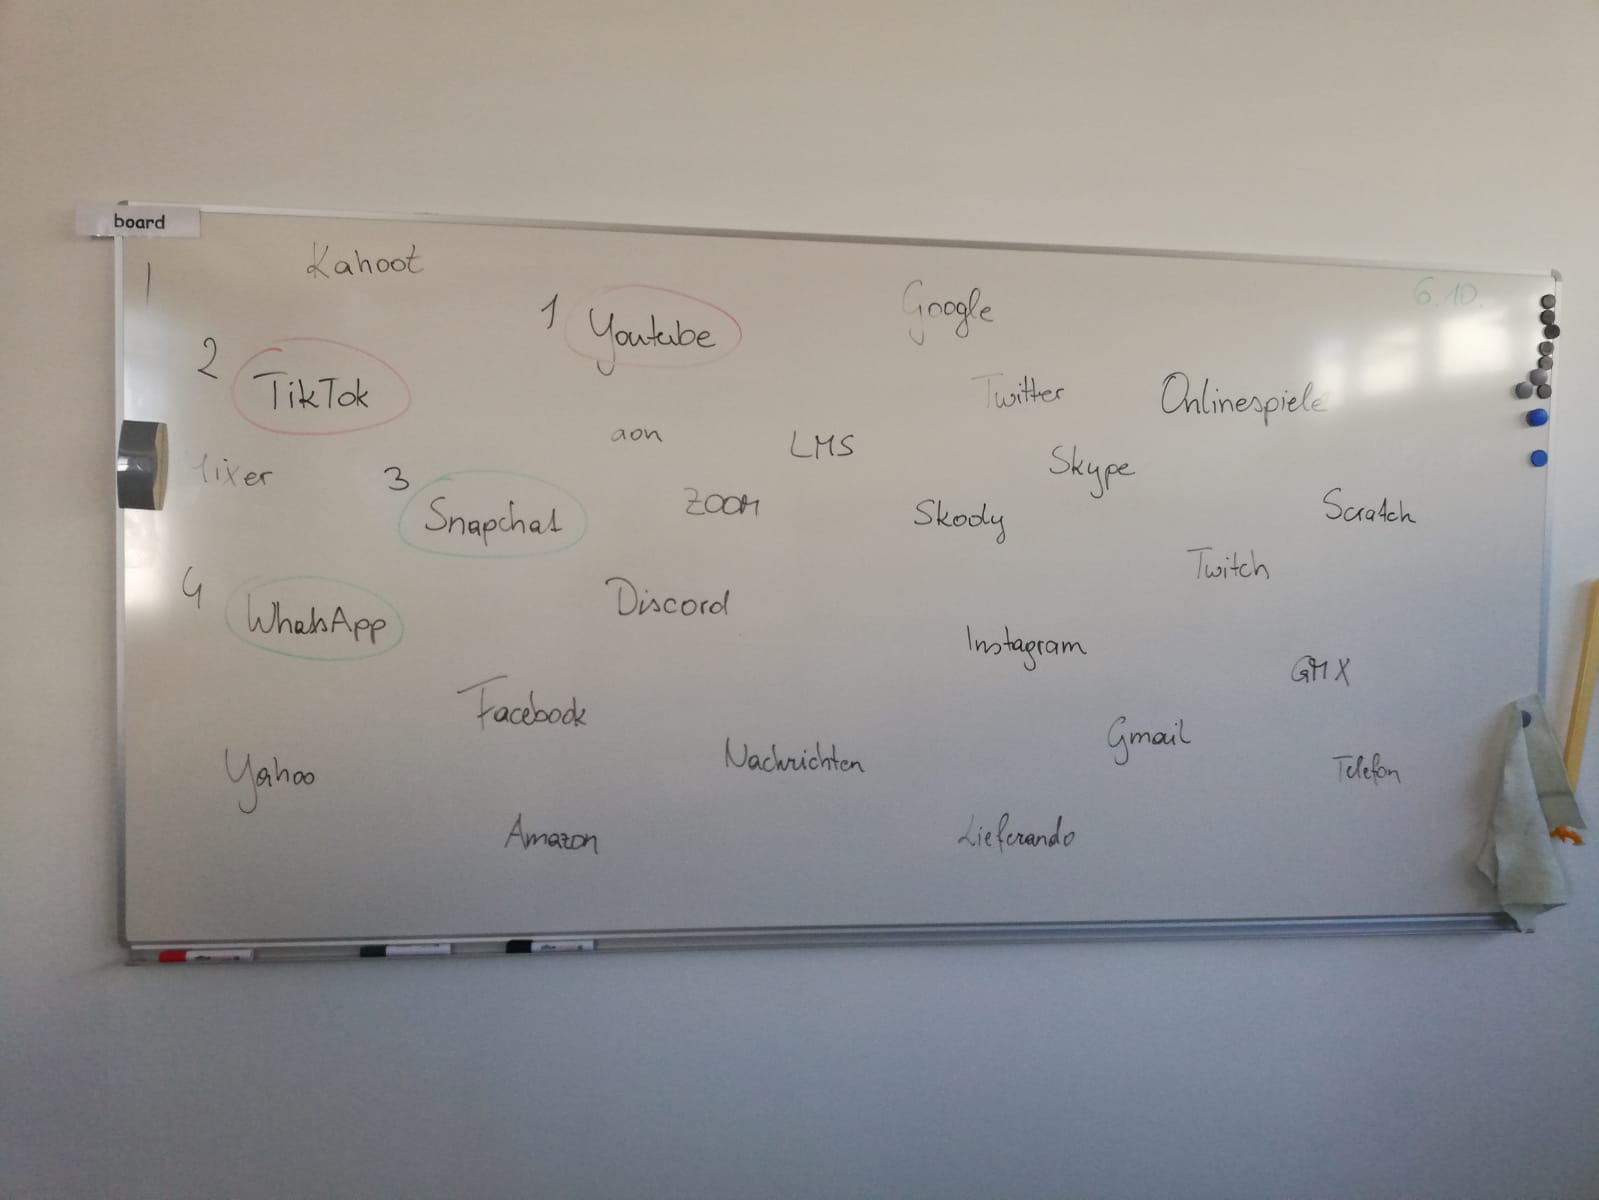 board
Kahoot
6.10.
1 Youtube
Google
2 TikTok
Twitter
Onlinespiele
aon
LMS
Skype
3 Snapchat
ZOOM
Skody
Scratch
Twitch
4 WhatsApp
Discord
Instagram
GMX
Facebook
Gmail
Yahoo
Nachrichten
Telefon
Amazon
Lieferando